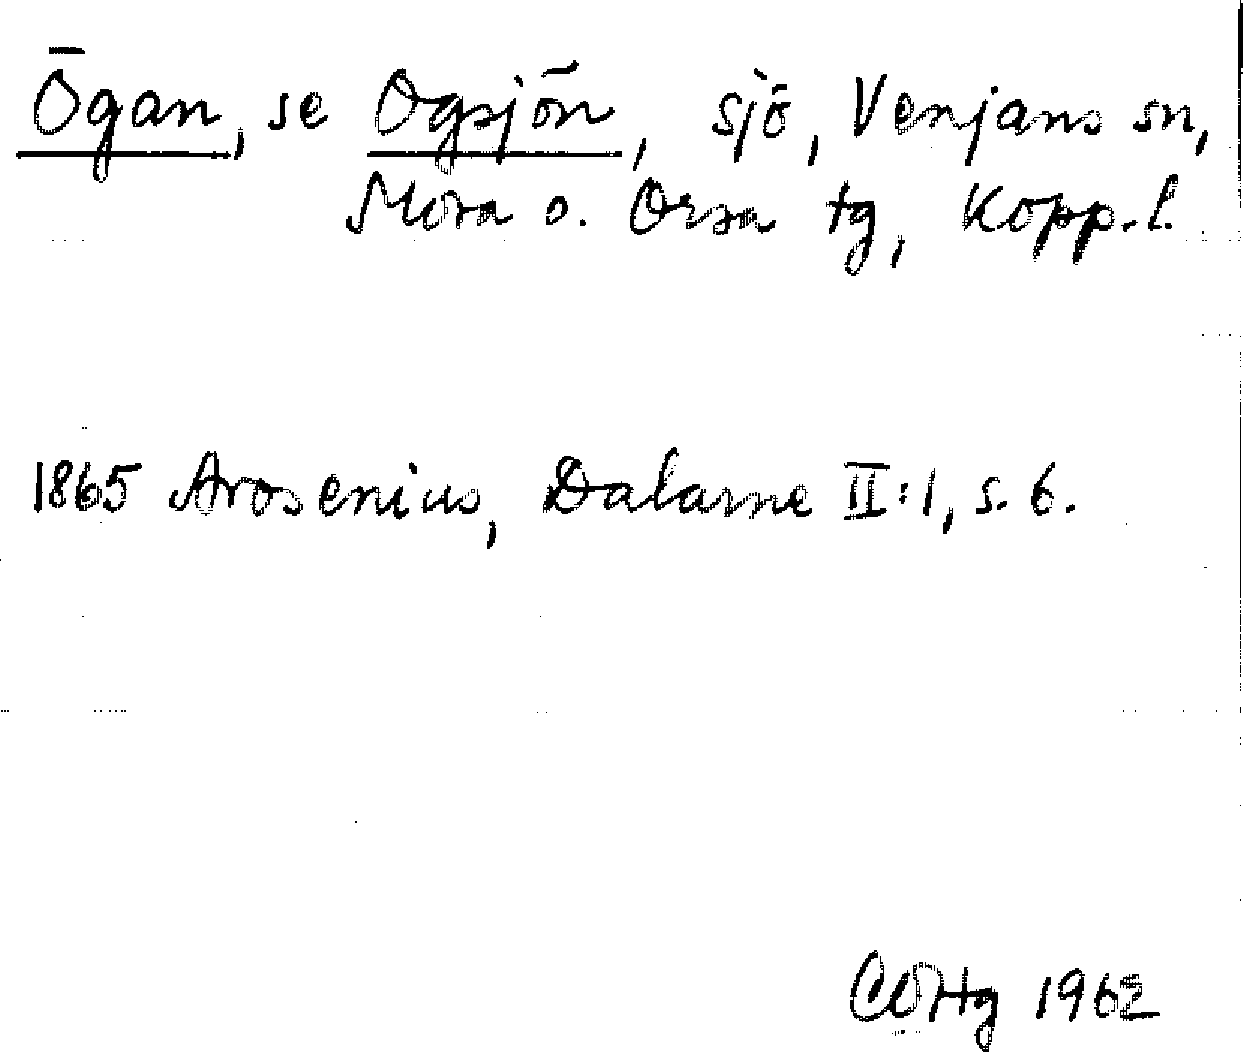 Ögan, se Ogsjön, sjö, Venjans sn,
Mora o. Orsa tg, Kopp. l.
1865 Arosenius, Dalarne II:1, s. 6.
COHg 1962